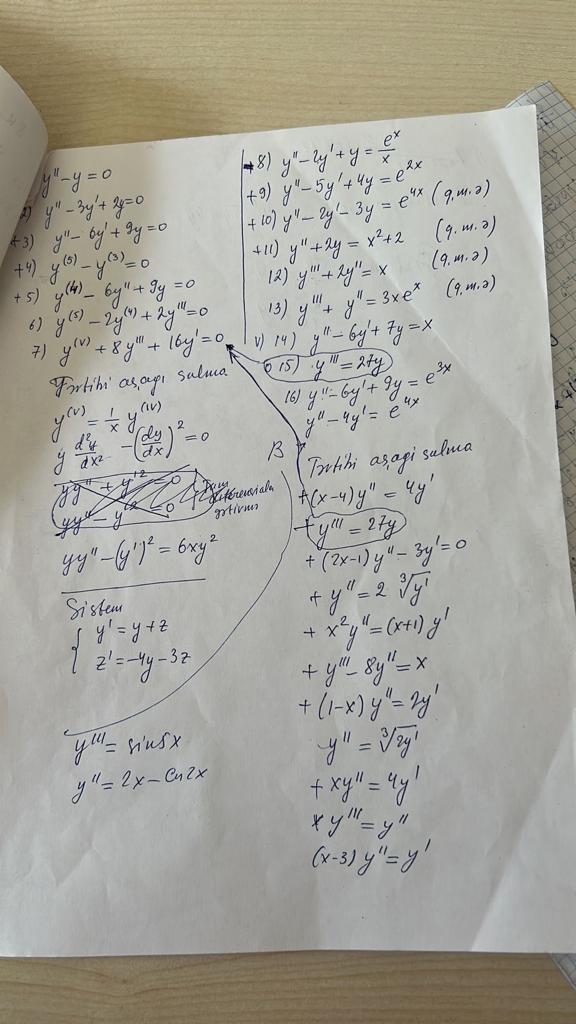 y'' - y = 0
2) y'' - 3y' + 2y = 0
+3) y'' - 6y' + 9y = 0
+4) y⁽⁵⁾ - y⁽³⁾ = 0
+5) y⁽⁴⁾ - 6y'' + 9y = 0
6) y⁽⁵⁾ - 2y⁽⁴⁾ + 2y''' = 0
7) y⁽ⱽ⁾ + 8y''' + 16y' = 0
Tərtibi aşağı salma
y⁽ⱽ⁾ = 1/x y⁽ᴵⱽ⁾
y d²y/dx² - (dy/dx)² = 0
yy'' + y'² = 0
yy'' - y'² = 0
yy'' - (y')² = 6xy²
Sistem
{ y' = y + z
z' = -4y - 3z
y''' = sin5x
y'' = 2x -
+8) y'' - 2y' + y = eˣ/x
+9) y'' - 5y' + 4y = e²ˣ
+10) y'' - 2y' - 3y = e⁴ˣ (q.m.ə)
+11) y'' + 2y = x² + 2 (q.m.ə)
12) y''' + 2y'' = x (q.m.ə)
13) y''' + y'' = 3xeˣ (q.m.ə)
V) 14) y'' - 6y' + 7y = x
15) y''' = 27y
16) y'' - 6y' + 9y = e³ˣ
y'' - 4y' = e⁴ˣ
B
Tərtibi aşağı salma
+ (x-4)y'' = 4y'
+ y''' = 27y
+ (2x-1)y'' - 3y' = 0
+ y'' = 2 ∛y'
+ x²y'' = (x+1)y'
+ y''' - 8y'' = x
+ (1-x)y'' = 2y'
y'' = ∛2y'
+ xy'' = 4y'
x y''' = y''
(x-3)y'' = y'